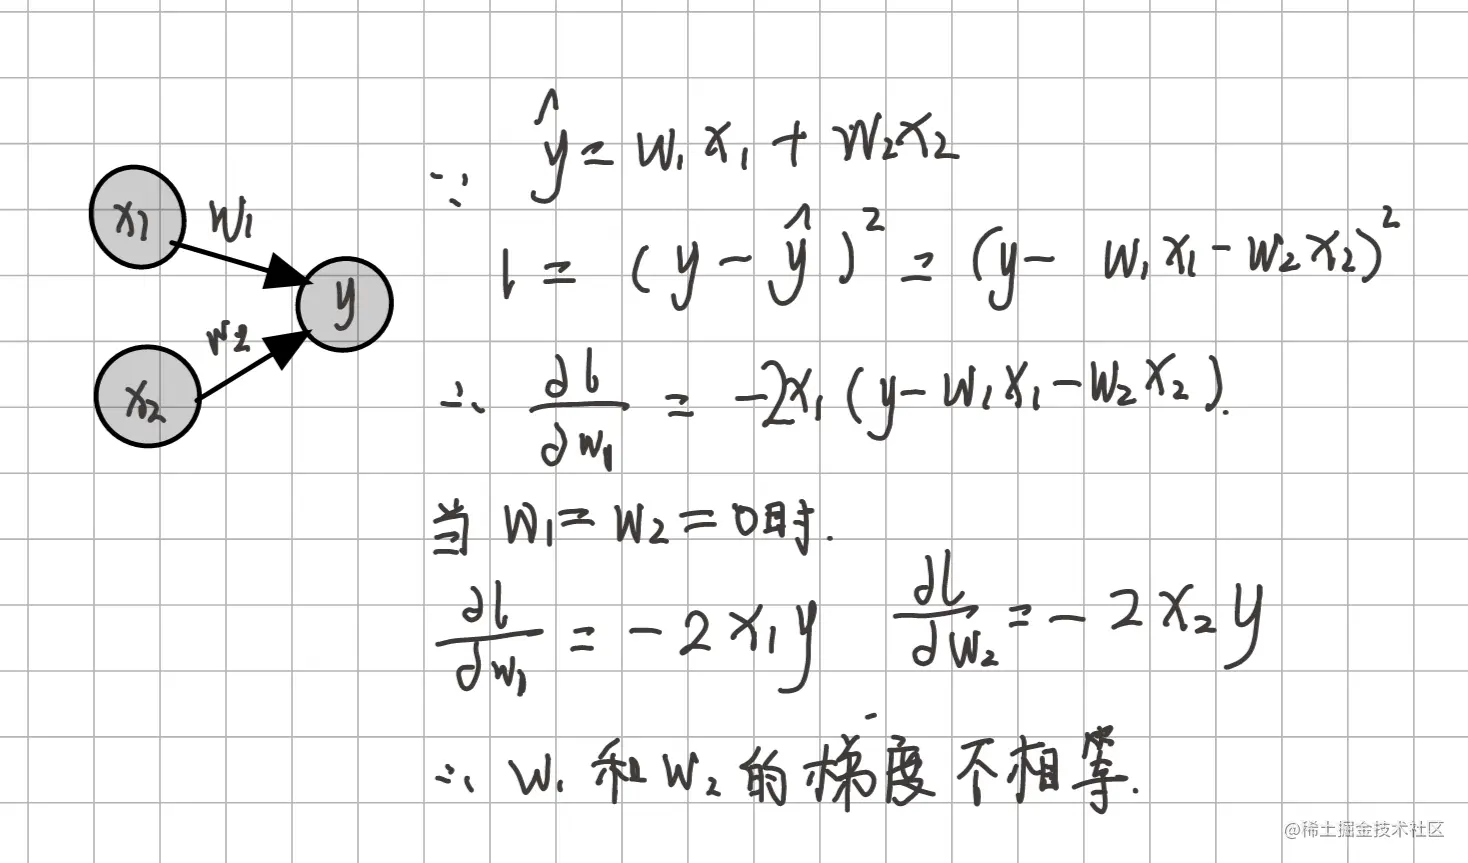 x₁ w₁
y
w₂
x₂
∵ ŷ = w₁x₁ + w₂x₂
l = (y - ŷ)² = (y - w₁x₁ - w₂x₂)²
∴ ∂l/∂w₁ = -2x₁(y - w₁x₁ - w₂x₂).
当 w₁ = w₂ = 0时.
∂l/∂w₁ = -2x₁y ∂l/∂w₂ = -2x₂y
∴ w₁ 和 w₂ 的梯度不相等.
@稀土掘金技术社区